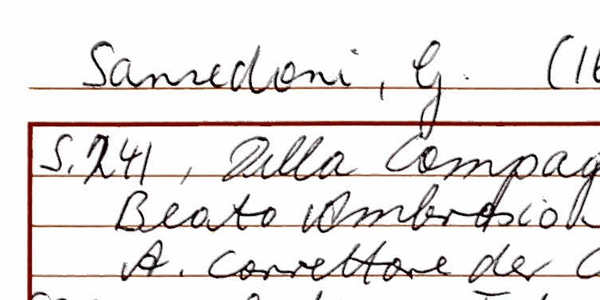 Sansedoni, G. (16
S. 241, Della Compag
Beato Ambrosio S
A. Correttore der C